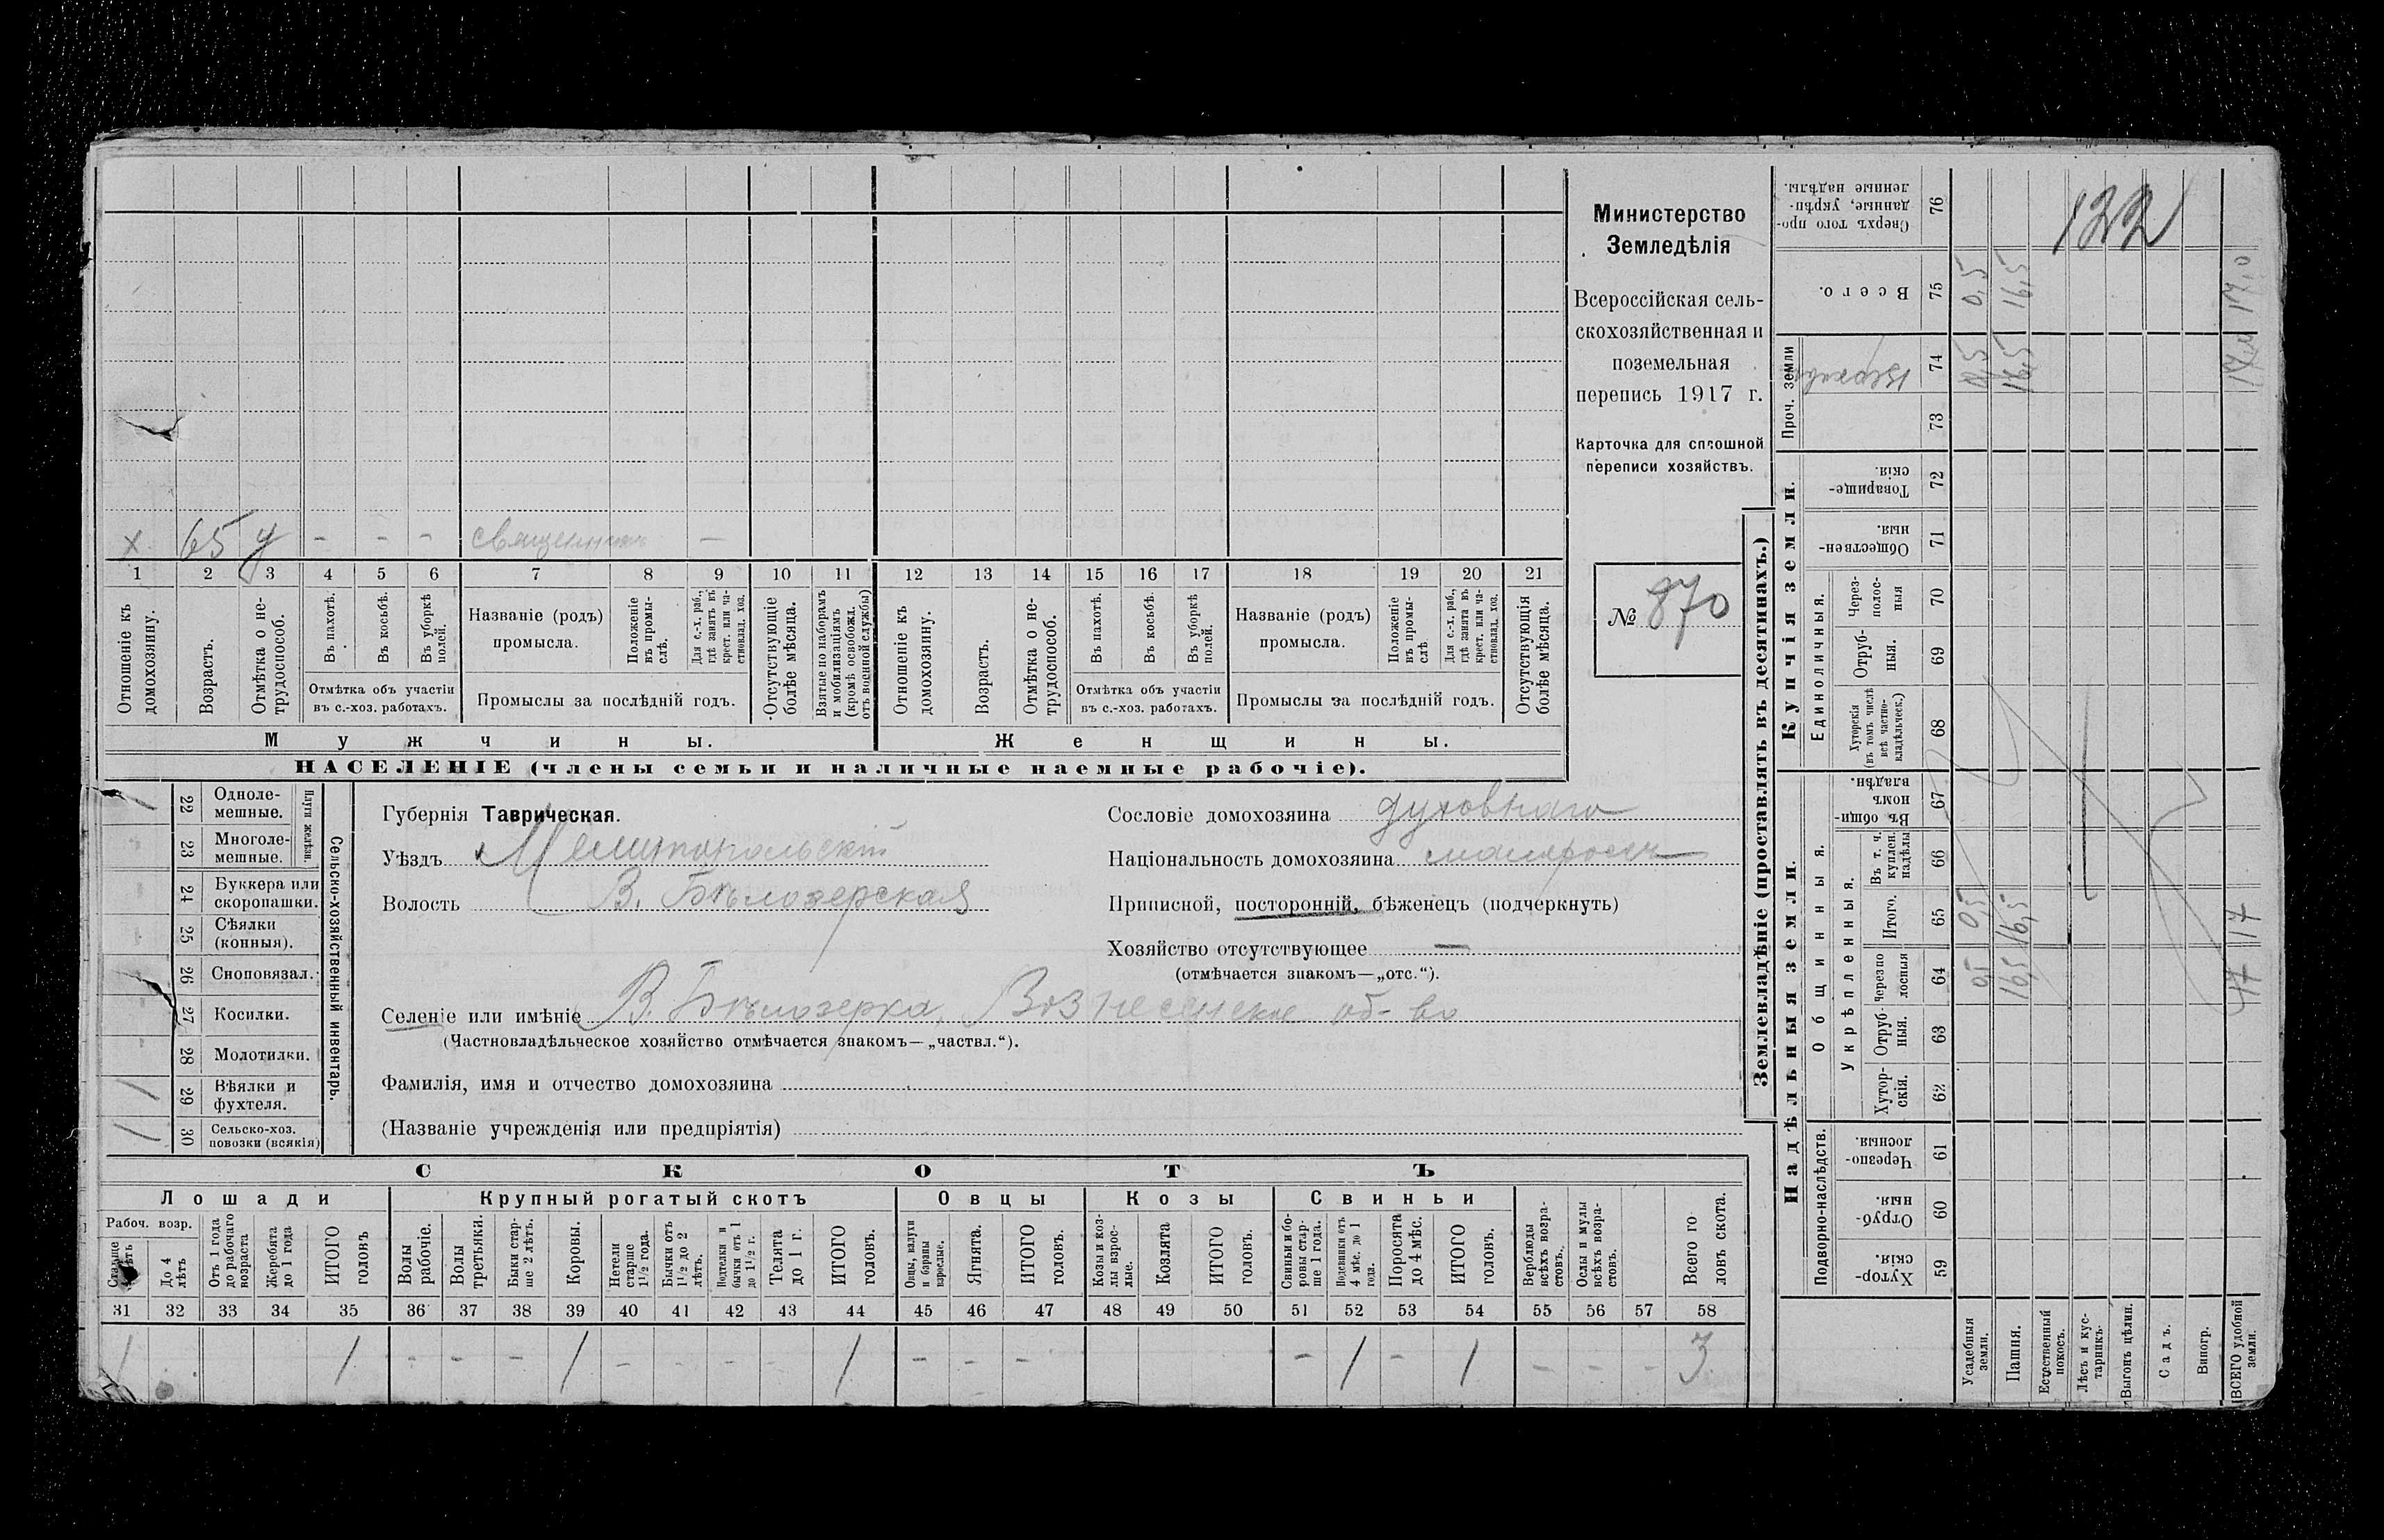 х 65 У - - - священникъ -
1 2 3 4 5 6 7 8 9 10 11 12 13 14 15 16 17 18 19 20 21
Отношеніе къ домохозяину.
Возрастъ.
Отмѣтка о не-трудоспособ.
Въ пахотѣ.
Въ косьбѣ.
Въ уборкѣ полей.
Отмѣтка объ участіи
въ с.-хоз. работахъ.
Названіе (родъ)
промысла.
Положеніе въ промы-слѣ.
Для с.-х. раб., гдѣ занятъ въ крест. или ча-стновлад. хоз.
Промыслы за послѣдній годъ.
Отсутствующіе болѣе мѣсяца.
Взятые по наборамъ и мобилизаціямъ (кромѣ освобожд. отъ военной службы)
Отношеніе къ домохозяину.
Возрастъ.
Отмѣтка о не-трудоспособ.
Въ пахотѣ.
Въ косьбѣ.
Въ уборкѣ полей.
Отмѣтка объ участіи
въ с.-хоз. работахъ.
Названіе (родъ)
промысла.
Положеніе въ промы-слѣ
Для с.-х. раб., гдѣ занята въ крест. или ча-стновлад. хоз.
Промыслы за послѣдній годъ.
Отсутствующія болѣе мѣсяца.
Мужчины. Женщины.
НАСЕЛЕНІЕ (члены семьи и наличные наемные рабочіе).
Министерство
Земледѣлія
Всероссійская сель-
скохозяйственная и
поземельная
перепись 1917 г.
Карточка для сплошной
переписи хозяйствъ.
№ 870
1 22 Одноле-мешные.
23 Многоле-мешные.
Плуги желѣзн.
24 Буккера или скоропашки.
25 Сѣялки (конныя).
26 Сноповязал.
27 Косилки.
28 Молотилки.
1 29 Вѣялки и фухтеля.
1 30 Сельско-хоз. повозки (всякія)
Сельско-хозяйственный инвентарь.
Губернія Таврическая.
Уѣздъ Мелитопольскій
Волость В. Бѣлозерская
Сословіе домохозяина духовнаго
Національность домохозяина малоросъ
Приписной, посторонній, бѣженецъ (подчеркнуть)
Хозяйство отсутствующее —
(отмѣчается знакомъ—„отс.“).
Селеніе или имѣніе В. Бѣлозерка, Вознесенское об-во
(Частновладѣльческое хозяйство отмѣчается знакомъ—„частвл.“).
Фамилія, имя и отчество домохозяина
(Названіе учрежденія или предпріятія)
СКОТЪ
Лошади Крупный рогатый скотъ Овцы Козы Свиньи
Рабоч. возр.
Старше 4 лѣтъ
До 4 лѣтъ
Отъ 1 года до рабочаго возраста
Жеребята до 1 года
ИТОГО головъ
Волы рабочіе.
Волы третьяки.
Быки стар-ше 2 лѣтъ.
Коровы.
Нетели старше 1½ года.
Бычки отъ 1½ до 2 лѣтъ.
Подтелки и бычки отъ 1 до 1½ г.
Телята до 1 г.
ИТОГО головъ.
Овцы, валухи и бараны взрослые.
Ягнята.
ИТОГО головъ.
Козы и коз-лы взрос-лые.
Козлята
ИТОГО головъ.
Свиньи и бо-ровы стар-ше 1 года.
Подсвинки отъ 4 мѣс. до 1 года.
Поросята до 4 мѣс.
ИТОГО головъ.
Верблюды всѣхъ возра-стовъ.
Ослы и мулы всѣхъ возра-стовъ.
Всего головъ скота.
31 32 33 34 35 36 37 38 39 40 41 42 43 44 45 46 47 48 49 50 51 52 53 54 55 56 57 58
1 1 - - - 1 - - - - 1 - - - - 1 - 1 - - - 3
Землевладѣніе (проставлять въ десятинахъ.)
Надѣльныя земли. Купчія земли. Проч. земли
Подворно-наслѣдств.
Общинныя.
Укрѣпленныя.
Единоличныя.
Хутор-скія. 59
Отруб-ныя. 60
Черезпо-лосныя. 61
Хутор-скія. 62
Отруб-ныя. 63
Черезпо-лосныя 64 0,5 16,5 17
Итого. 65 0,5 16,5 17
Въ т. ч. куплен. надѣлы 66
Въ общин-номъ владѣн. 67
Хуторскія (въ томъ числѣ всѣ частно-владѣльческ.) 68
Отруб-ныя. 69
Через-полос-ныя 70
Обществен-ныя. 71
Товарище-скія. 72
73
74 0,5 16,5
Всего. 75 0,5 16,5 17,0
Сверхъ того про-данные, укрѣп-ленные надѣлы. 76
122
Усадебныя земли.
Пашня.
Естественный покосъ.
Лѣсъ и кус-тарникъ.
Выгонъ цѣлин.
Садъ.
Виногр.
ВСЕГО удобной земли.